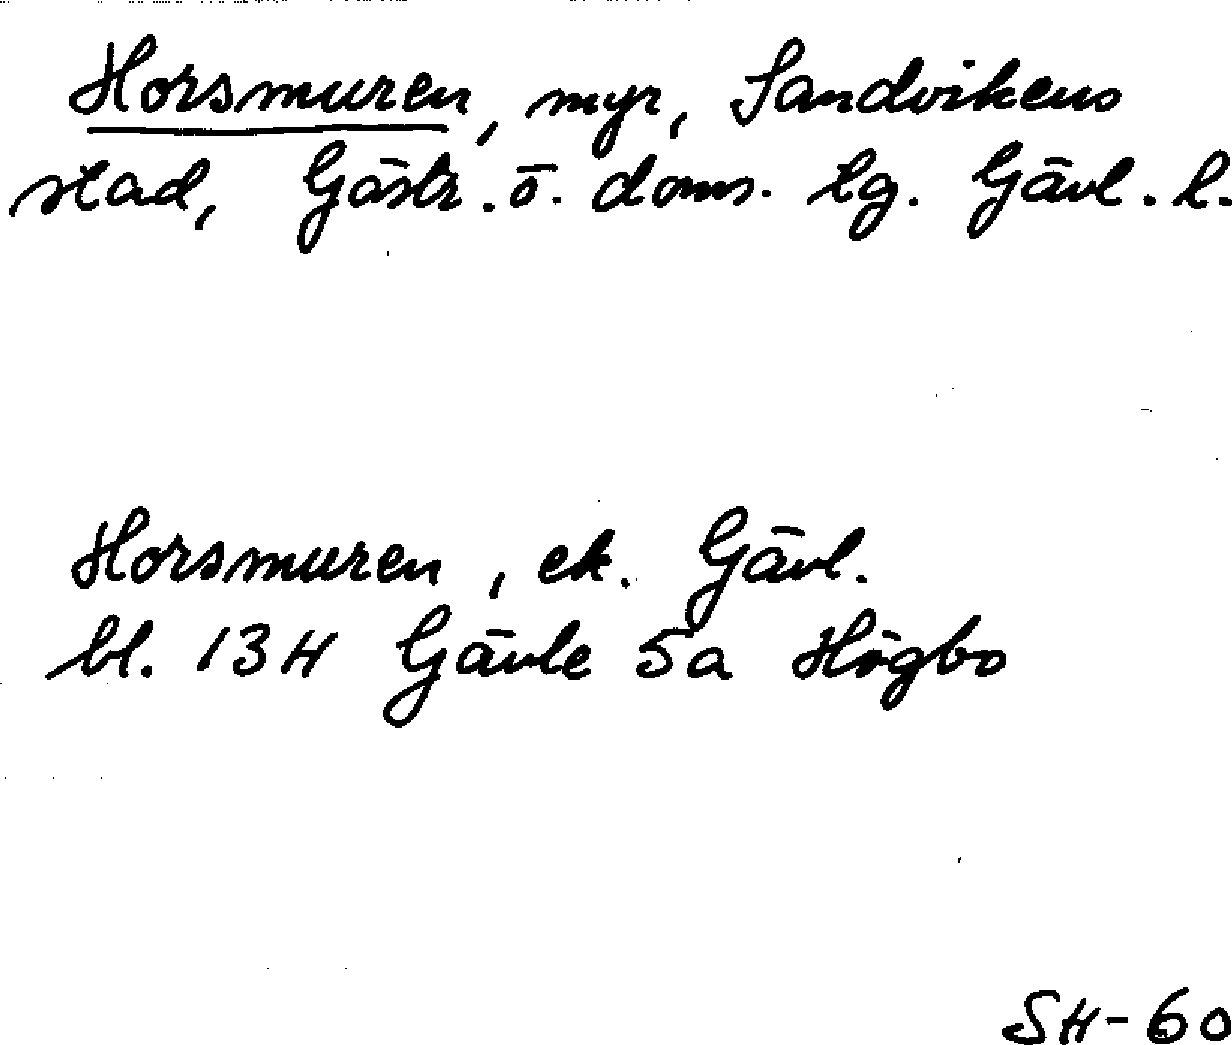 Horsmuren, myr, Sandvikens
stad, Gästr. ö. doms. tg. Gävl. l.
Horsmuren, ek. Gävl.
bl. 13H Gävle 5a Högbo
SH-60